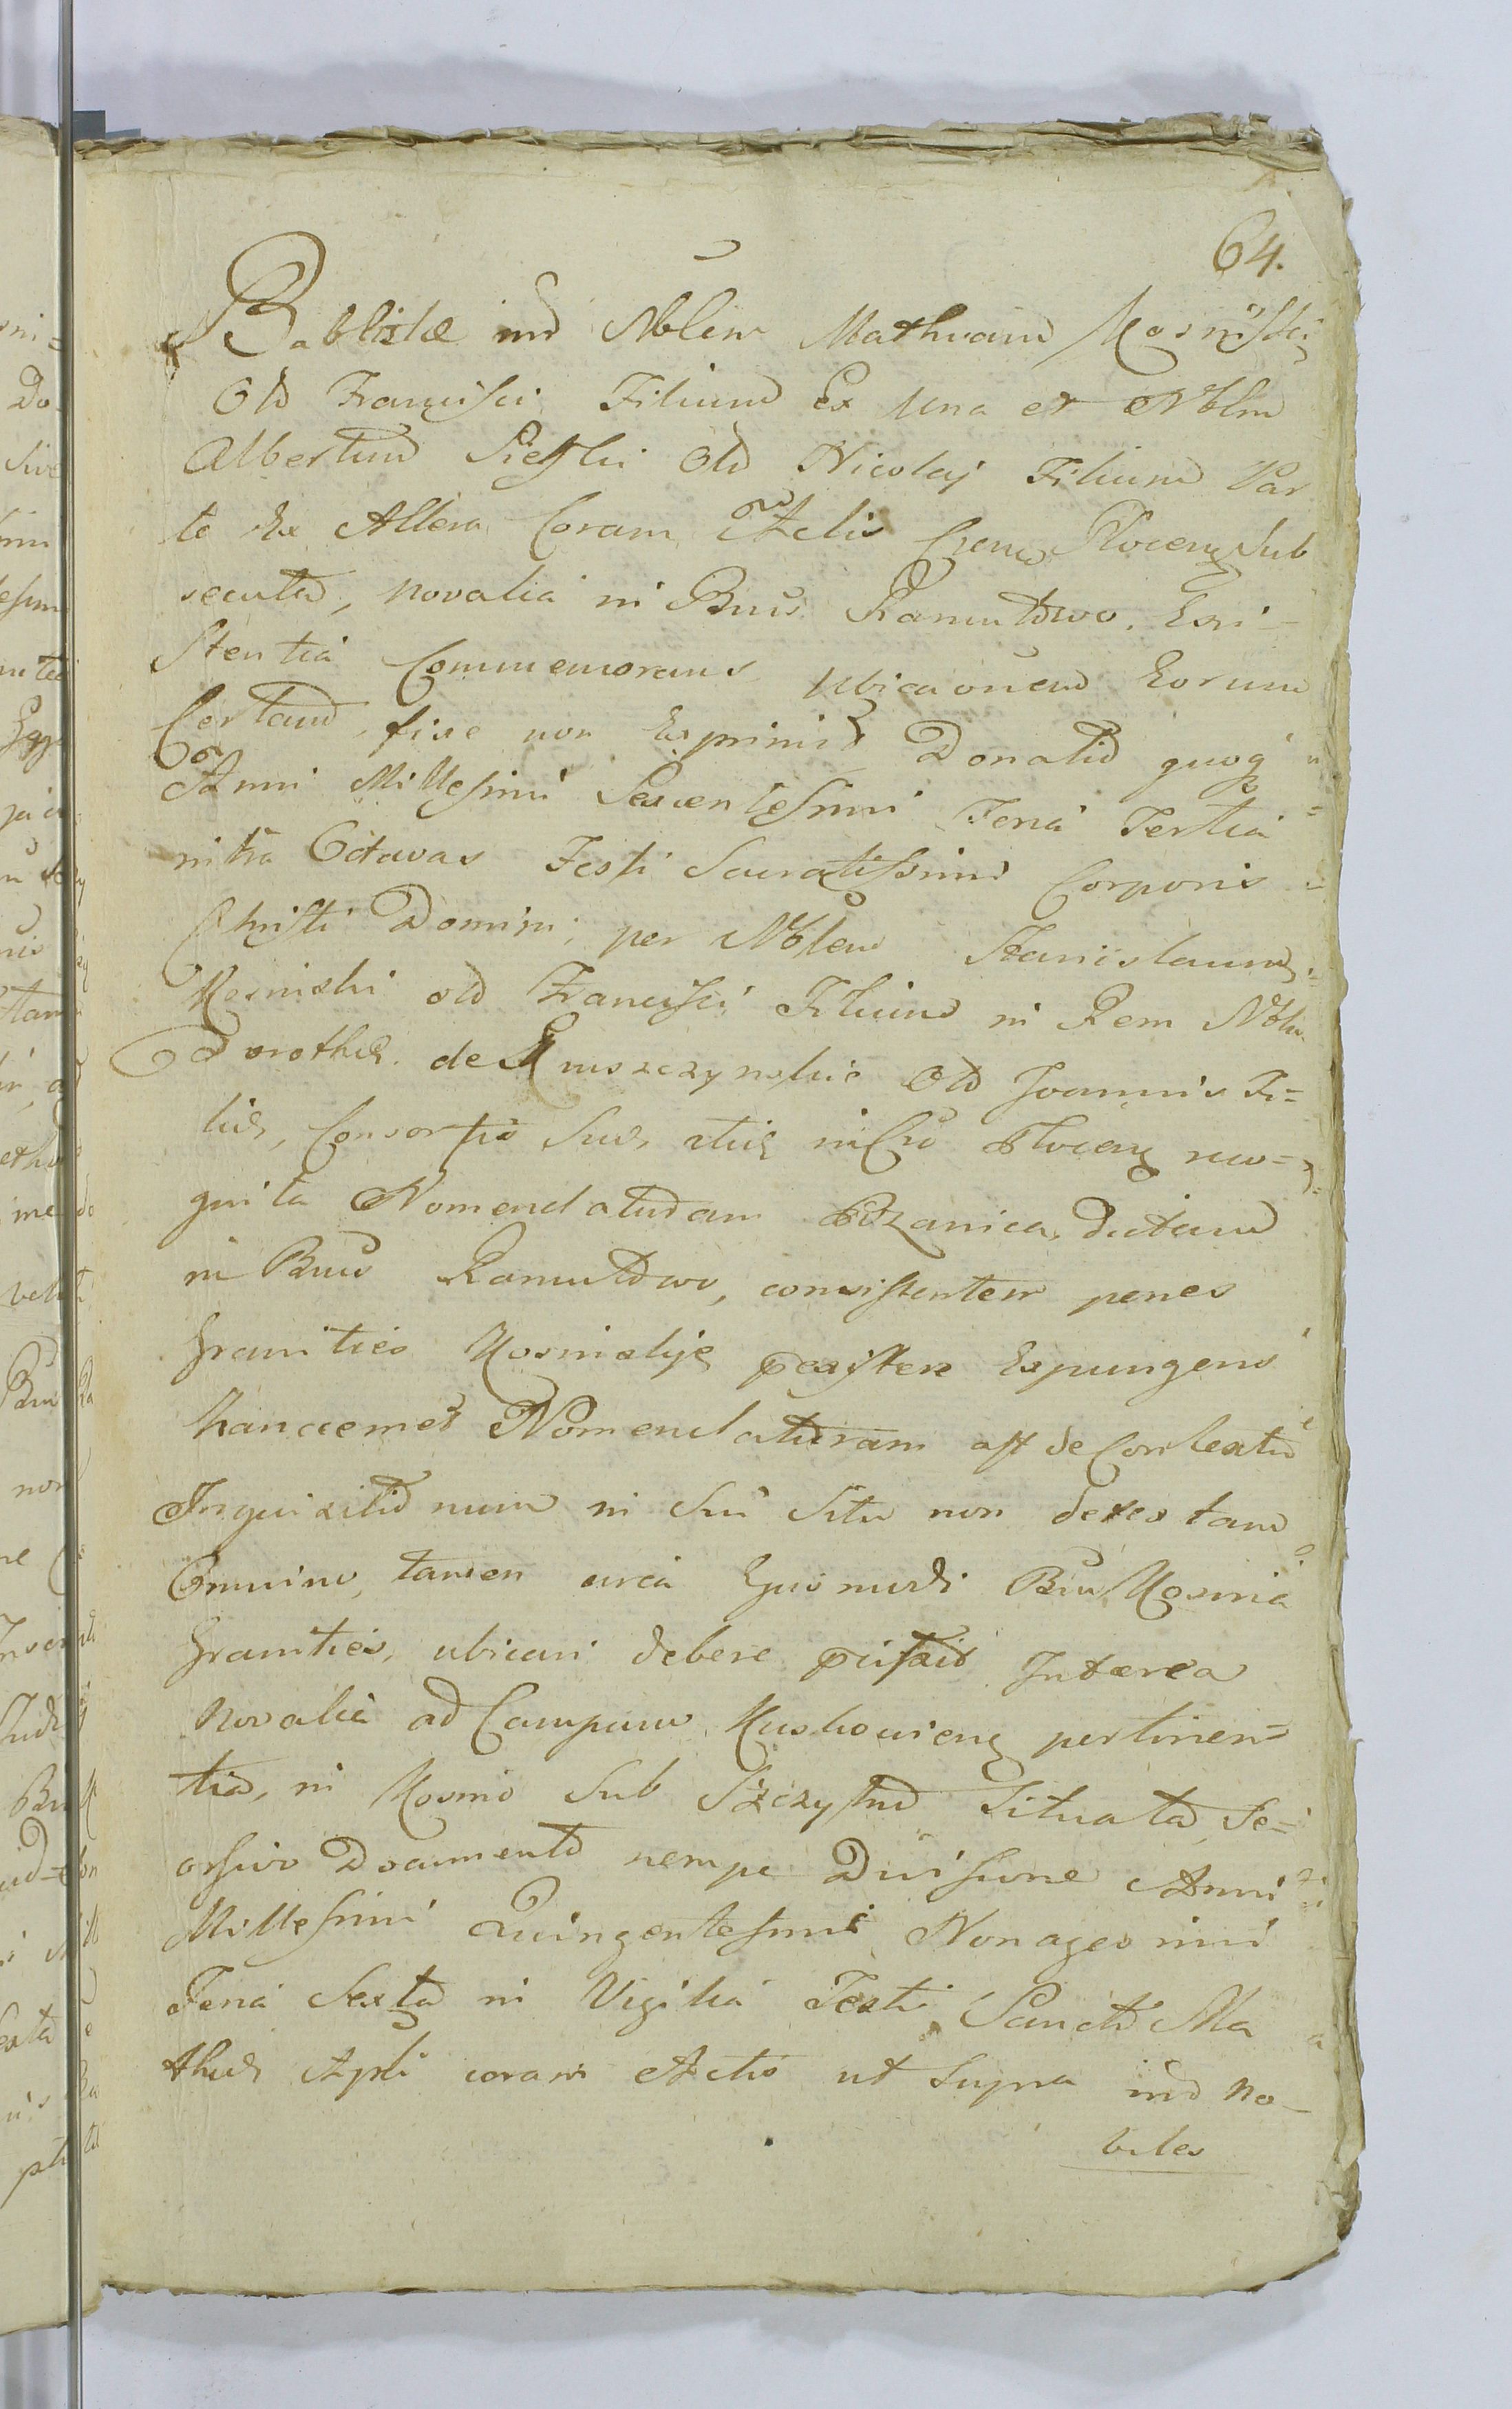 64.
Babtistæ int Nblem Mathuam Kosmski
Old Francisci Filium Ex Una et Nblm
Albertum Siesski Old Nicolaj Filium Par
te Ex Altera Coram Actis Plocens Sub
secuta, novalia in Bnis Ramutowo. Exi-
Stentia Commemorans Ubicaonem Eorum
Certam, fixe non Exprimit Donatio quoq
Anni Millesimi Sexcentesimi Feria Tertia
intra Octavas Festi Sacratissimi Corporis
Christi Domini, per Nblem Stanislaum
Kosmski old Francisci Filium in Rem Nblis
Dorotheæ de Kruszczynskie Old Joannis Fi=
liæ, Consortis Suæ, in Cro Plocens reco=
gnita Nomenclaturam Brzanica, dictam
in Bnis Ramutowo, consistentem penes
Granities Kosmskije existere Expungens
hanccemet Nomenclaturam ast de Contextu
Inquisitionum in Sui Situ non detectam
Omnino, tamen circa Ejusmodi Bnr Kosmia
Granities, ubicari debere Interea
Novalia ad Campum Muskowieng pertinen=
tia, in Kosmo Sub Szczytno Situata, Se=
orsivo Documento nempe Divisione Anni
Millesimi Quingentesimi Nonagesimi
Feria Sexta in Vigilia Festi Sancti Ma
thæi Apli coram Actis ut Supra int No-
biles